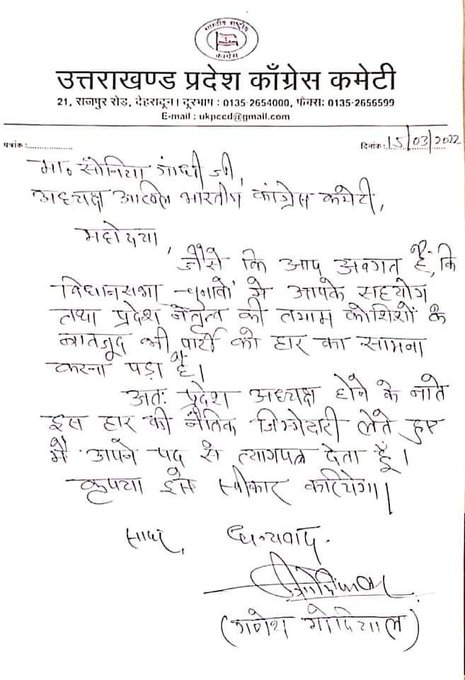 भारतीय राष्ट्रीय
कांग्रेस
उत्तराखण्ड प्रदेश काँग्रेस कमेटी
21, राजपुर रोड, देहरादून। दूरभाष : 0135-2654000, फैक्स: 0135-2656599
E-mail : ukpccd@gmail.com
पत्रांक:.................... दिनांक: 15/03/2022
मा० सोनिया गांधी जी,
अध्यक्ष अखिल भारतीय कांग्रेस कमेटी,
महोदया,
जैसे कि आप अवगत हैं, कि
विधानसभा चुनावों में आपके सहयोग
तथा प्रदेश नेतृत्व की तमाम कोशिशों के
बावजूद भी पार्टी को हार का सामना
करना पड़ा है।
अतः प्रदेश अध्यक्ष होने के नाते
इस हार की नैतिक जिम्मेदारी लेते हुए
मैं अपने पद से त्यागपत्र देता हूँ।
कृपया इसे स्वीकार करियेगा।
सादर, धन्यवाद.
(गणेश गोदियाल)